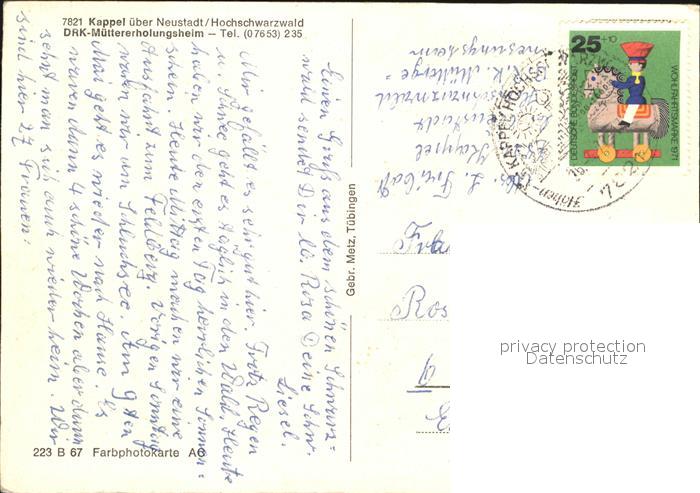 7821 Kappel über Neustadt/Hochschwarzwald
DRK-Müttererholungsheim – Tel. (07653) 235
Einen Gruß aus dem schönen Schwarz=
wald sendet Dir lb. Rosa Deine Schw.
Liesel.
Mir gefällt es sehr gut hier. Trotz Regen
u. Schnee geht es täglich in den Wald. Heute
haben wir den ersten Tag herrlichen Sonnen=
schein. Heute Mittag machen wir eine
Ausfahrt zum Feldberg. Vorigen Sonntag
waren wir am Schluchsee. Am 9ten
Mai geht es wieder nach Hause. Es
waren dann 4 schöne Wochen aber dann
sehnt man sich auch wieder heim. Wir
sind hier 27 Frauen.
223 B 67 Farbphotokarte AG
Gebr. Metz, Tübingen
Abs. L.
Kappel
Neustadt
Hochschwarzwald
D.R.K. Müttergе=
nesungsheim
Ros
25+10
DEUTSCHE BUNDESPOST
WOHLFAHRTSMARKE 1971
KAPPEL
Höhen-
privacy protection
Datenschutz